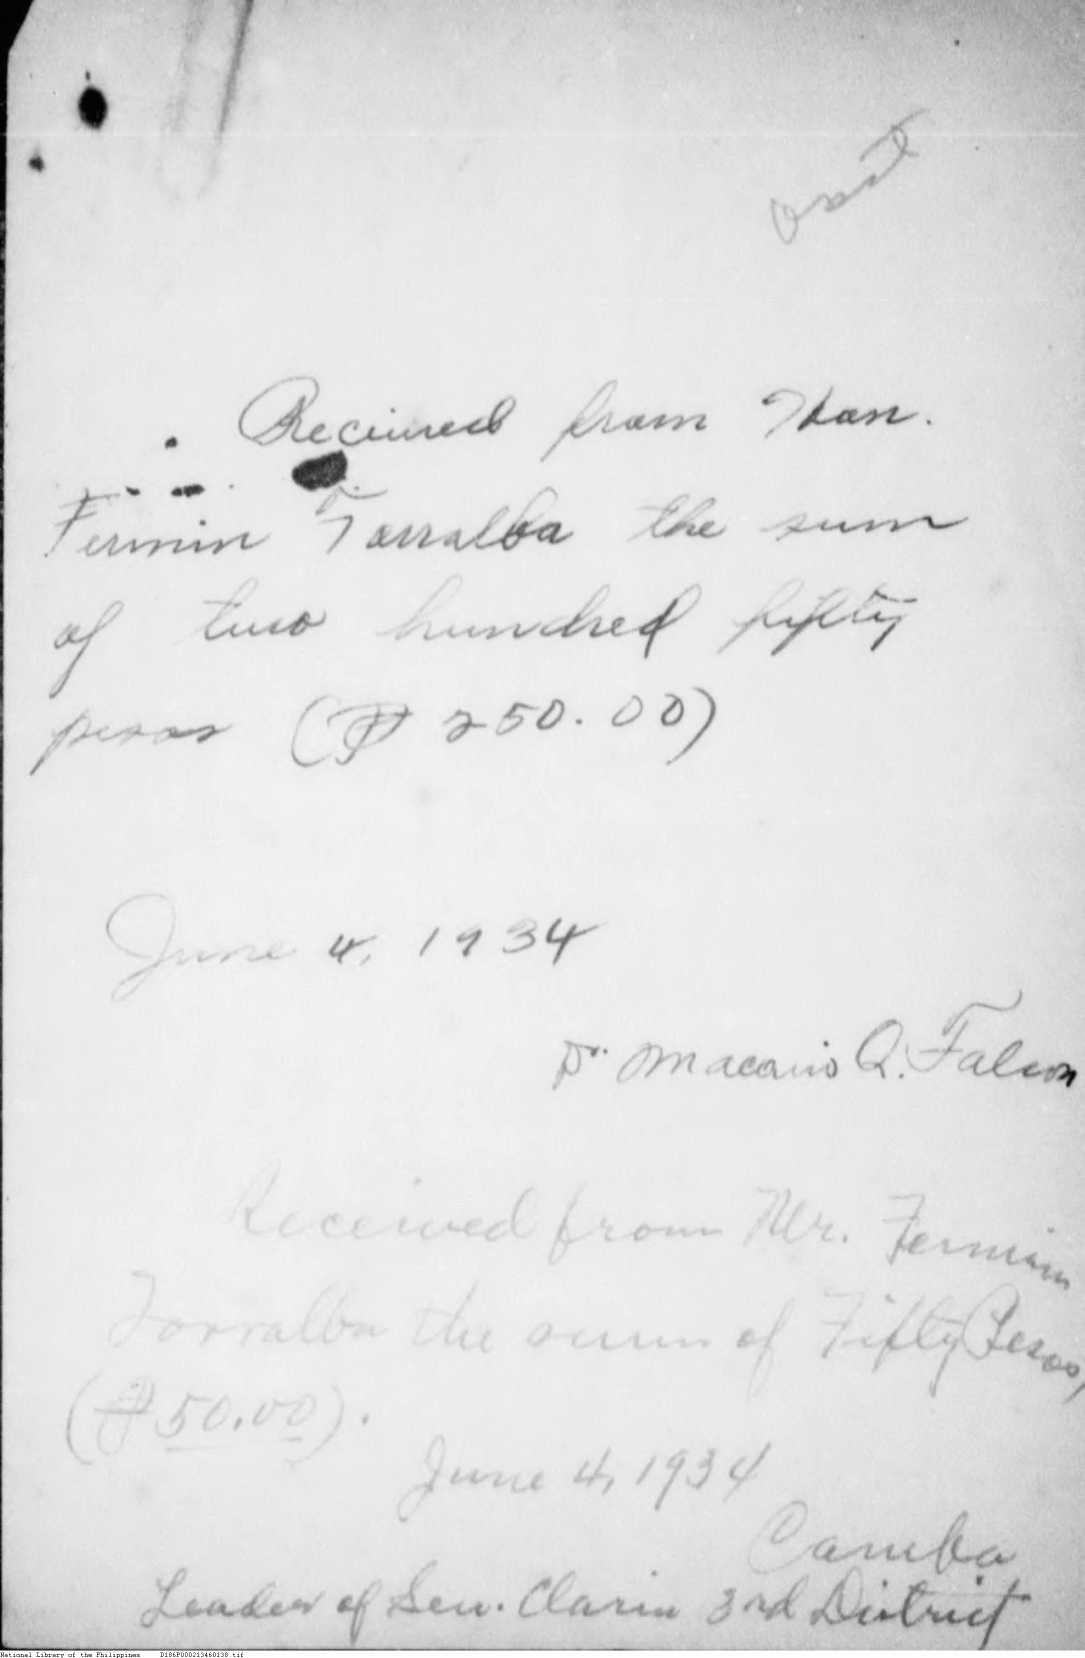 Received from Hon.
Fermin Torralba the sum
of two hundred fifty
pesos (₱ 250.00)
June 4, 1934
Dr. Macario Q. Falcon
Received from Mr. Fermin
Torralba the sum of Fifty Pesos,
(₱ 50.00).
June 4, 1934
Leader of Sen. Clarin 3rd District
National Library of the Philippines D186P000213460138.tif